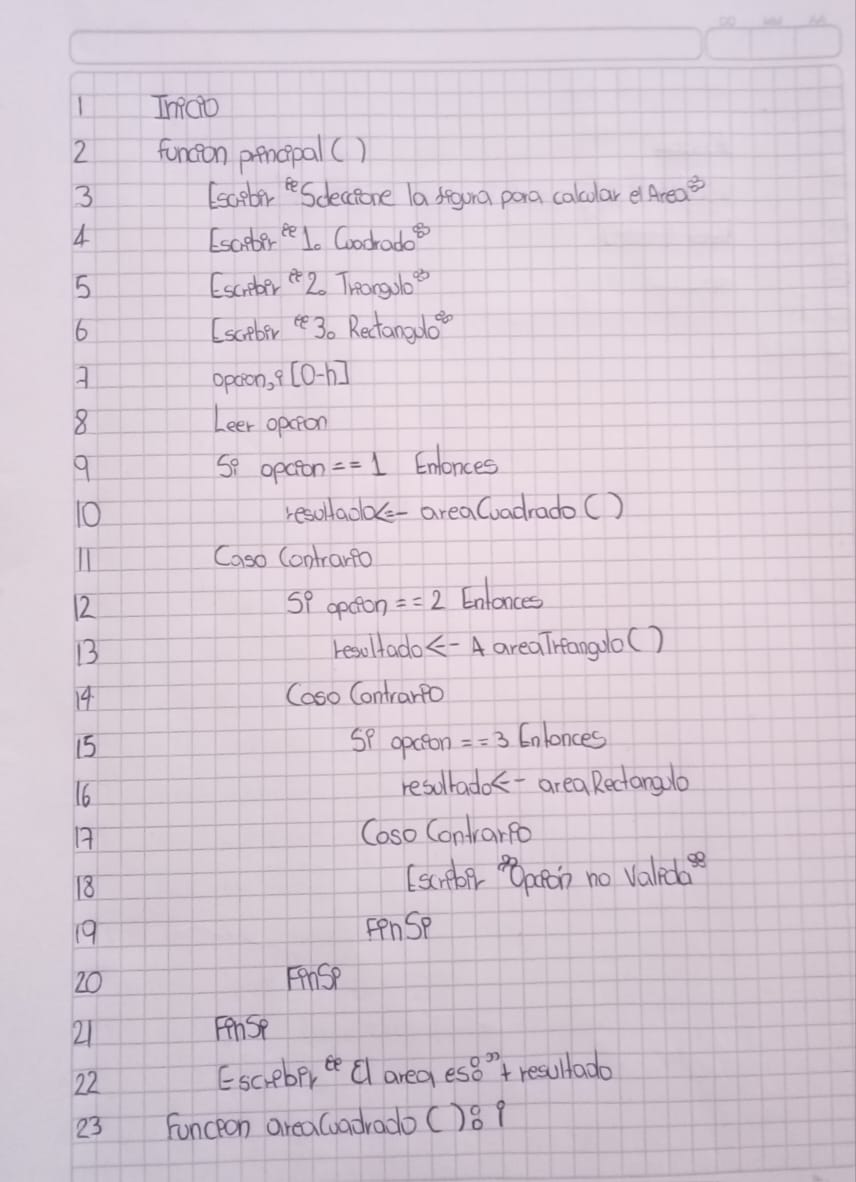 1 Inicio
2 funcion principal ( )
3 Escribir "Seleccione la figura para calcular el Area"
4 Escribir "1. Cuadrado"
5 Escribir "2. Triangulo"
6 Escribir "3. Rectangulo"
7 opcion, i [0-h]
8 Leer opcion
9 Si opcion == 1 Entonces
10 resultado <- areaCuadrado ( )
11 Caso Contrario
12 Si opcion == 2 Entonces
13 resultado <- A areaTriangulo ( )
14 Caso Contrario
15 Si opcion == 3 Entonces
16 resultado <- areaRectangulo
17 Caso Contrario
18 Escribir "Opción no Valida"
19 FinSi
20 FinSi
21 FinSi
22 Escribir "El area es:" + resultado
23 Funcion areaCuadrado ( ): i